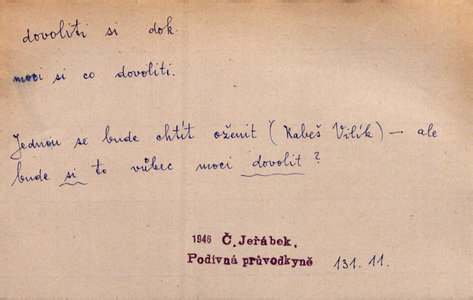 dovoliti si dok.
moci si co dovoliti.
Jednou se bude chtít oženit (Kabeš Vilík) – ale
bude si to vůbec moci dovolit?
1946 Č. Jeřábek,
Podivná průvodkyně 131.11.